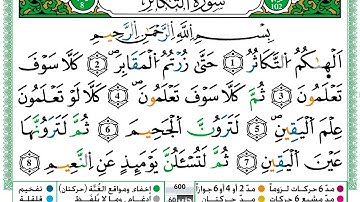 سُورَةُ التَّكَاثُرِ
بِسْمِ اللَّهِ الرَّحْمَنِ الرَّحِيمِ
أَلْهَىٰكُمُ التَّكَاثُرُ ۝١ حَتَّىٰ زُرْتُمُ الْمَقَابِرَ ۝٢ كَلَّا سَوْفَ
تَعْلَمُونَ ۝٣ ثُمَّ كَلَّا سَوْفَ تَعْلَمُونَ ۝٤ كَلَّا لَوْ تَعْلَمُونَ
عِلْمَ الْيَقِينِ ۝٥ لَتَرَوُنَّ الْجَحِيمَ ۝٦ ثُمَّ لَتَرَوُنَّهَا
عَيْنَ الْيَقِينِ ۝٧ ثُمَّ لَتُسْـَٔلُنَّ يَوْمَئِذٍ عَنِ النَّعِيمِ ۝٨
مدّ ٦ حركات لزوماً مدّ ٢ أو ٤ أو ٦ جوازاً 600 إخفاء، ومواقع الغُنَّة (حركتان) تفخيم
مدّ مشبع ٦ حركات مدّ حركتان 60 إدغام، وما لا يُلفَظ قلقلة